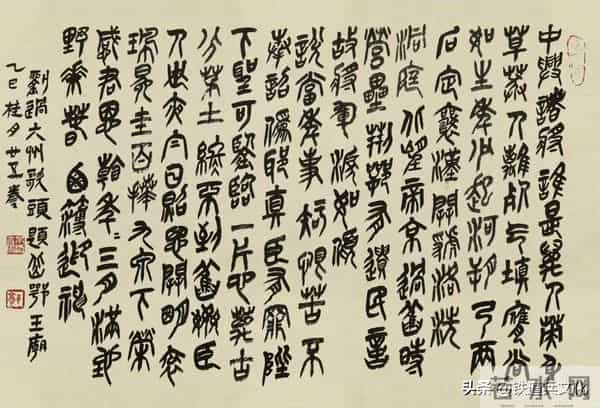 中興諸將誰是萬人英身
草莽人雖死氣填膺尚
如生年少起河朔弓兩
石定襄漢開虢洛洗
洞庭北望帝京過舊時
營壘荊鄂有遺民憶
故將軍淚如傾
說當年事知恨苦不
奉詔偽耶真臣有罪陛
下聖可鑒臨一片心萬古
分茅土終不到舊奸臣
人世夜白日照忽開明袞
珮冕圭百拜九泉下榮
感君恩看年:三月滿地
野花春鹵簿迎神
劉過六州歌頭題岳鄂王廟
乙巳桂月廿五
头条